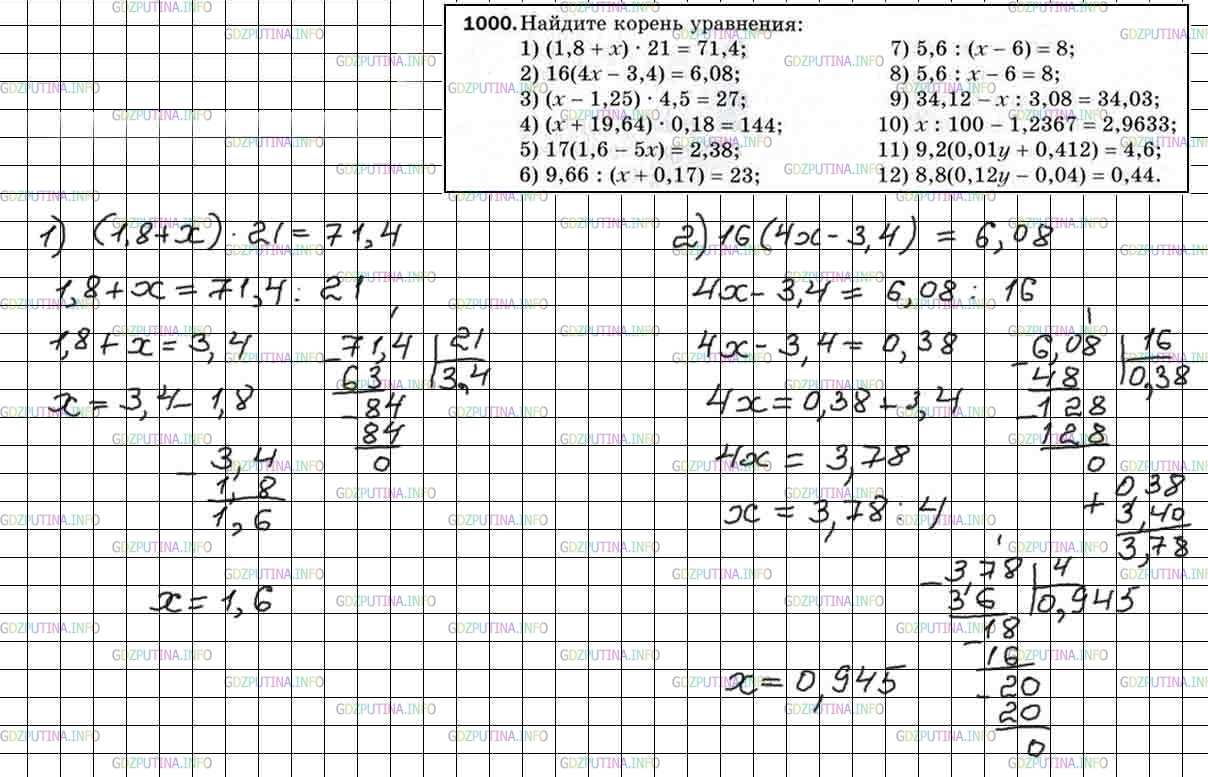 1000. Найдите корень уравнения:
1) (1,8 + x) · 21 = 71,4;
2) 16(4x − 3,4) = 6,08;
3) (x − 1,25) · 4,5 = 27;
4) (x + 19,64) · 0,18 = 144;
5) 17(1,6 − 5x) = 2,38;
6) 9,66 : (x + 0,17) = 23;
7) 5,6 : (x − 6) = 8;
8) 5,6 : x − 6 = 8;
9) 34,12 − x : 3,08 = 34,03;
10) x : 100 − 1,2367 = 2,9633;
11) 9,2(0,01y + 0,412) = 4,6;
12) 8,8(0,12y − 0,04) = 0,44.
1) (1,8+x) · 21 = 71,4
1,8 + x = 71,4 : 21
1,8 + x = 3,4
x = 3,4 − 1,8
− 71,4 | 21
63 | 3,4
− 84
84
0
− 3,4
1,8
1,6
x = 1,6
2) 16(4x − 3,4) = 6,08
4x − 3,4 = 6,08 : 16
4x − 3,4 = 0,38
4x = 0,38 + 3,4
4x = 3,78
x = 3,78 : 4
− 6,08 | 16
48 | 0,38
− 128
128
0
+ 0,38
3,40
3,78
− 3,78 | 4
36 | 0,945
− 18
16
− 20
20
0
x = 0,945
GDZPUTINA.INFO